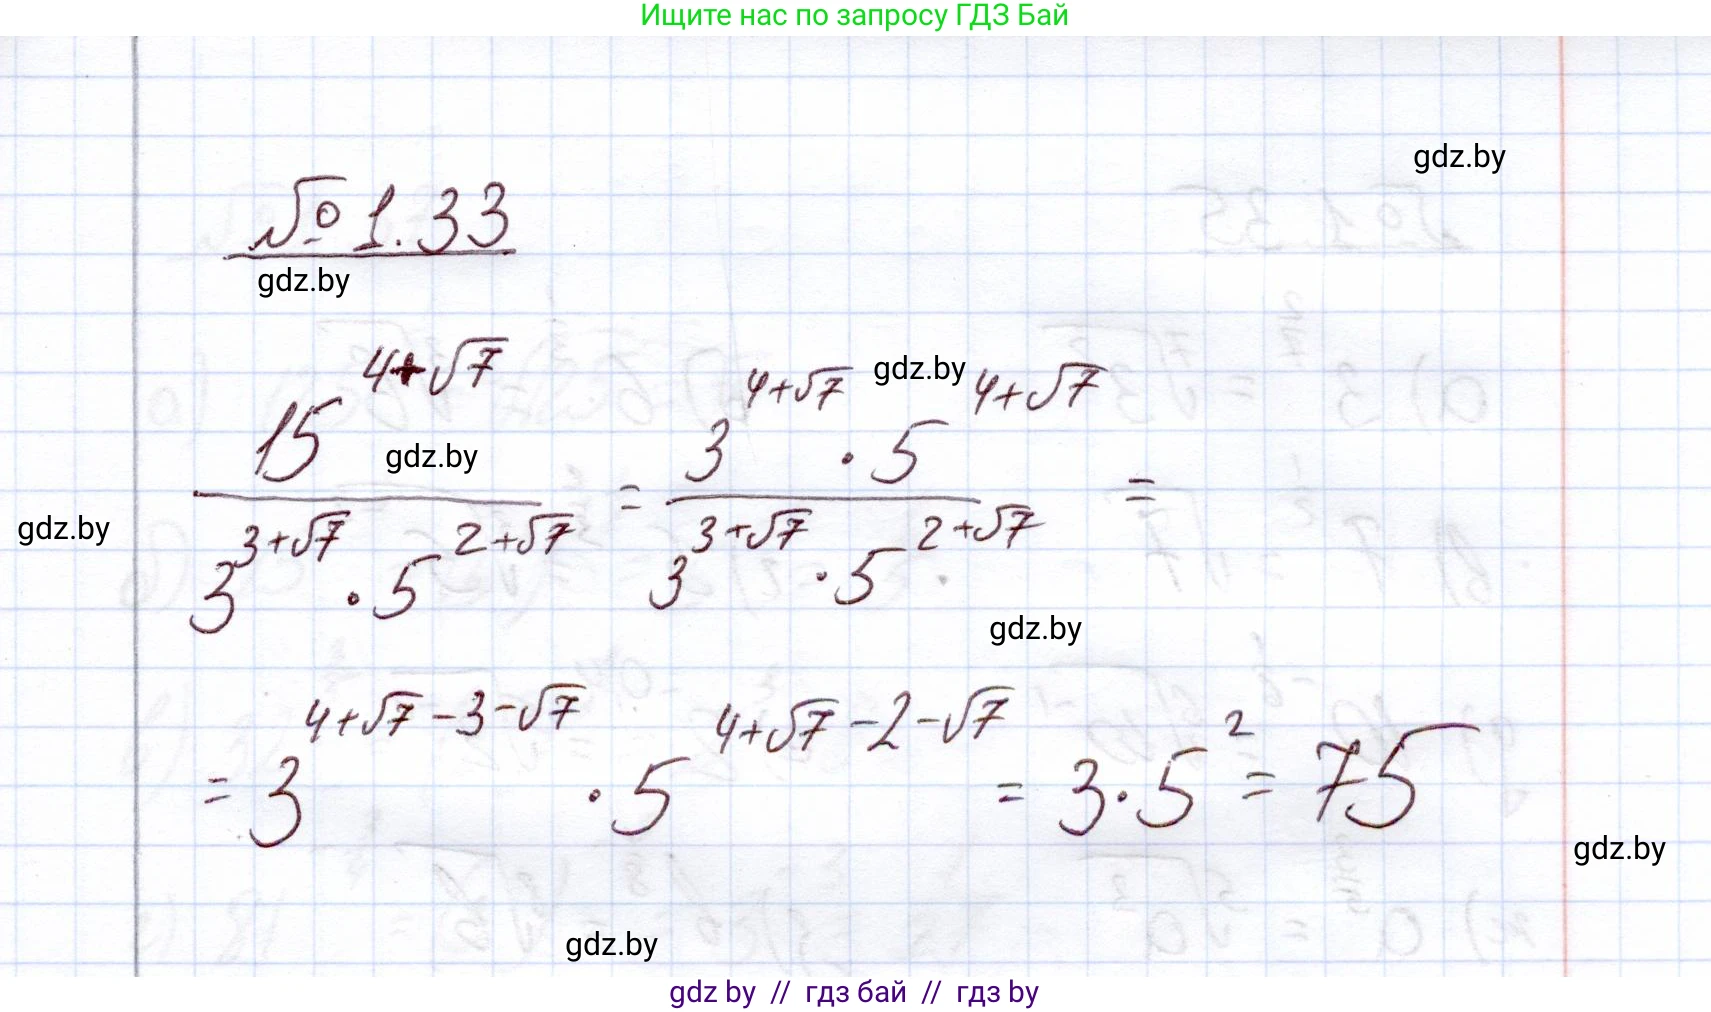 Ищите нас по запросу ГДЗ Бай
gdz.by
№ 1.33
gdz.by
15^(4+√7) / (3^(3+√7) · 5^(2+√7)) = (3^(4+√7) · 5^(4+√7)) / (3^(3+√7) · 5^(2+√7)) =
gdz.by
gdz.by
gdz.by
gdz.by
= 3^(4+√7-3-√7) · 5^(4+√7-2-√7) = 3·5² = 75
gdz.by
gdz.by
gdz by // гдз бай // гдз by